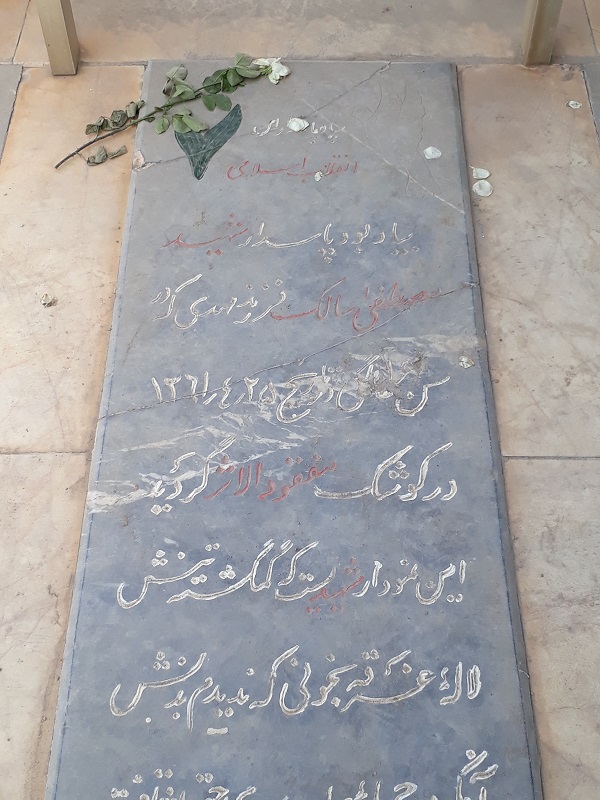 انقلاب اسلامی
بیاد بود پاسدار شهید
مصطفی سالک فرزند مهدی که در
سن تاریخ ۲۵ر۴ر۱۳۶۱
در کوشک مفقود الاثر گردید
این نمودار شهیدیست که گمگشته تنش
لالهٔ غرقه بخونی که ندیدم بدنش